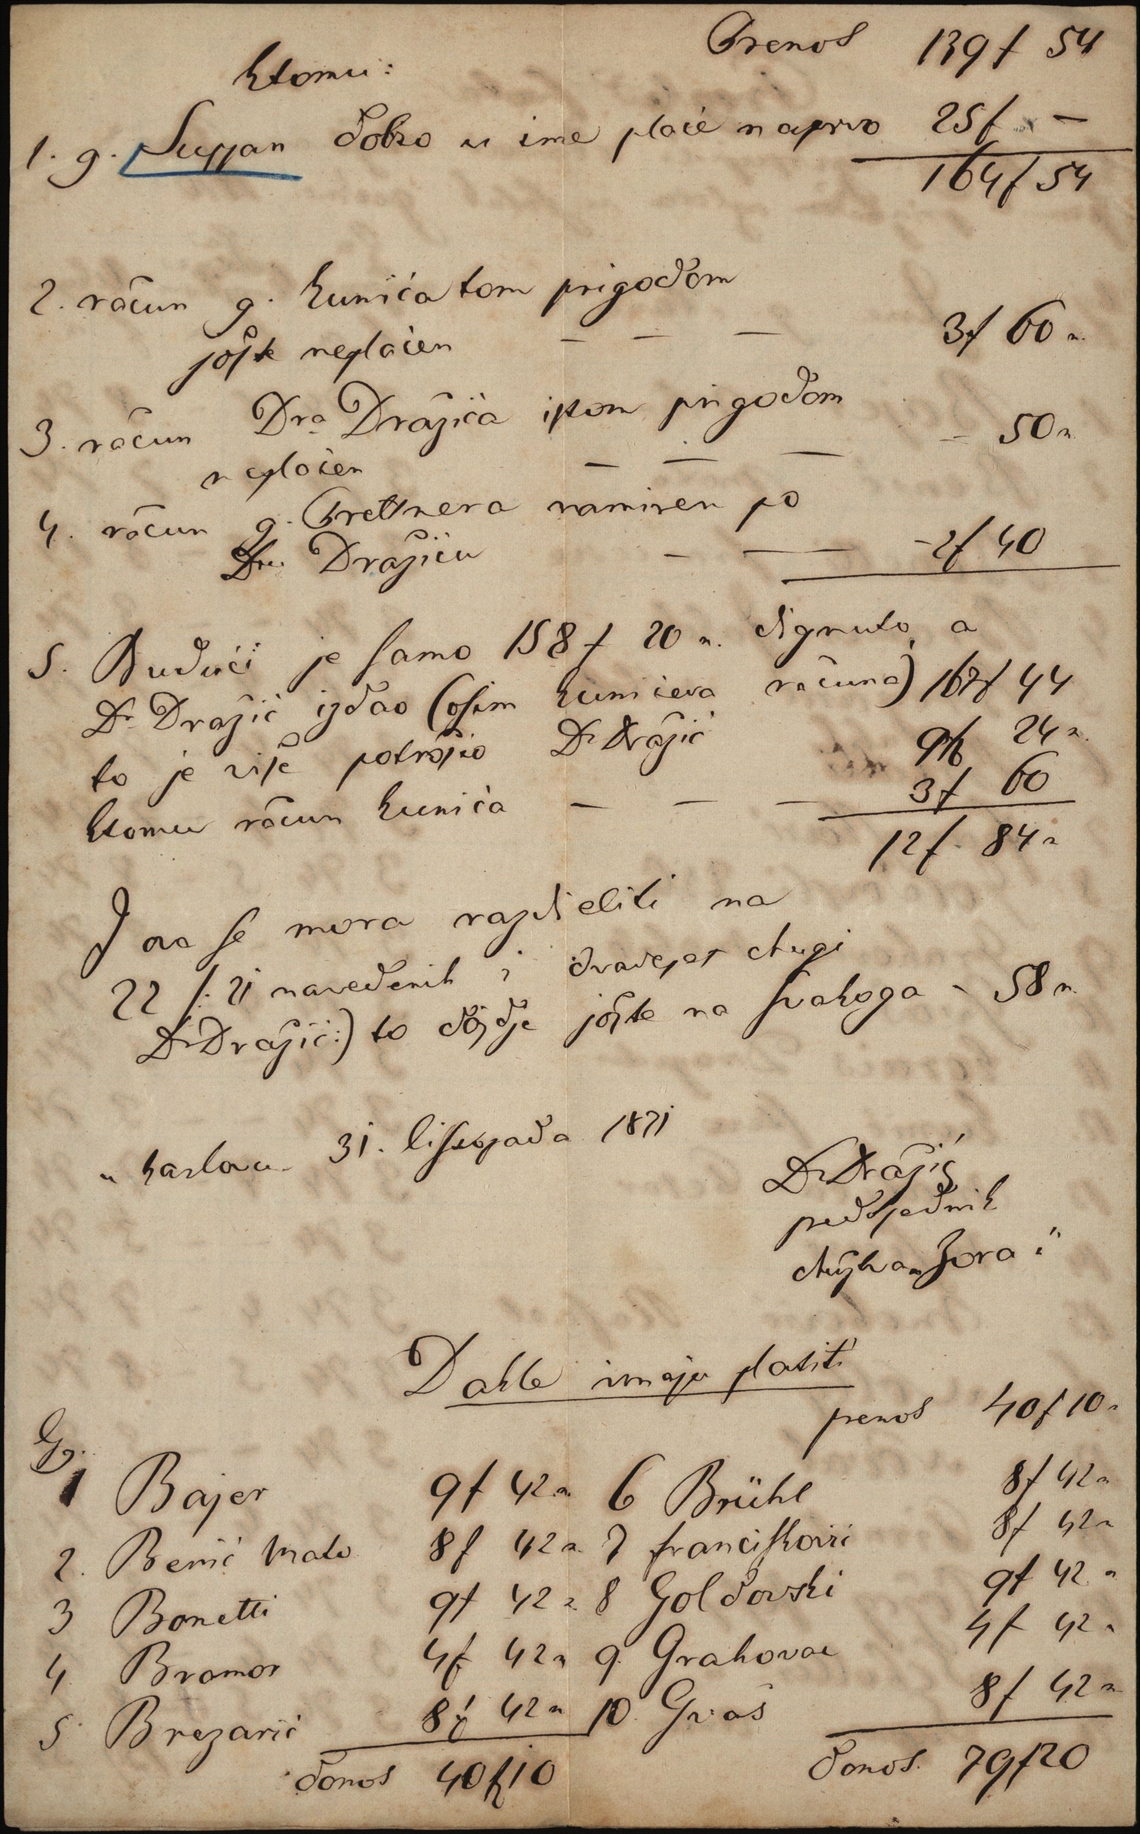 Prenos 139f 54
Ktomu:
1. g. Suppan dobio u ime plaće naprvo 25f –
164f 54
2. račun g. Kunića tom prigodom
jošte neplaćen – – – 3f 60 n.
3. račun Dra Dražića istom prigodom
neplaćen – – – – 50 n
4. račun g. Prettnera namiren po
Dru Dražiću – – – 2f 40
5. Budući je samo 158f 20 n. dignuto, a
Dr Dražić izdao (osim Kunićeva računa) 167f 44
to je više potrošio Dr Dražić 9f 24 n.
Ktomu račun Kunića – – – 3f 60
12f. 84 n
I ova se mora razdieliti na
22 /: 21 navedenih i dvadeset drugi
Dr Dražić:) to dojdje jošte na svakoga – 58 n.
u Karlovcu 31. listopada 1871
Dr Dražić
predsjednik
družtva „Zora“
Dakle imaju platiti
prenos 40f 10 n
Gg.
1 Bajer 9f 42 n 6 Brühl 8f 42 n
2. Benić Mato 8f 42 n 7 Francisković 8f 42 n
3 Bonetti 9f 42 n 8 Goldovski 9f 42 n
4 Bramor 4f 42 n 9 Grahovac 4f 42 n
5 Brezarić 8f 42 n 10 Gvaš 8f 42 n
donos 40f10 donos. 79f20